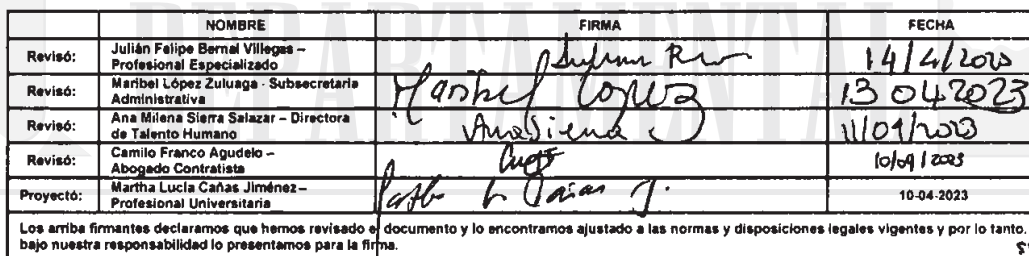 DEPARTAMENTAL
NOMBRE FIRMA FECHA
Revisó: Julián Felipe Bernal Villegas –
Profesional Especializado 14/4/2023
Revisó: Maribel López Zuluaga - Subsecretaria
Administrativa Maribel López 13 04 2023
Revisó: Ana Milena Sierra Salazar – Directora
de Talento Humano Ana Sierra S 11/04/2023
Revisó: Camilo Franco Agudelo –
Abogado Contratista 10/04/2023
Proyectó: Martha Lucía Cañas Jiménez –
Profesional Universitaria 10-04-2023
Los arriba firmantes declaramos que hemos revisado el documento y lo encontramos ajustado a las normas y disposiciones legales vigentes y por lo tanto,
bajo nuestra responsabilidad lo presentamos para la firma.